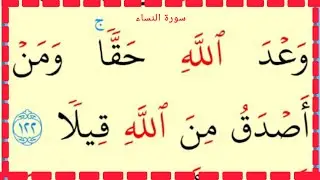 سورة النساء
وَعْدَ ٱللَّهِ حَقًّاۚ وَمَنْ
أَصْدَقُ مِنَ ٱللَّهِ قِيلًا ١٢٢